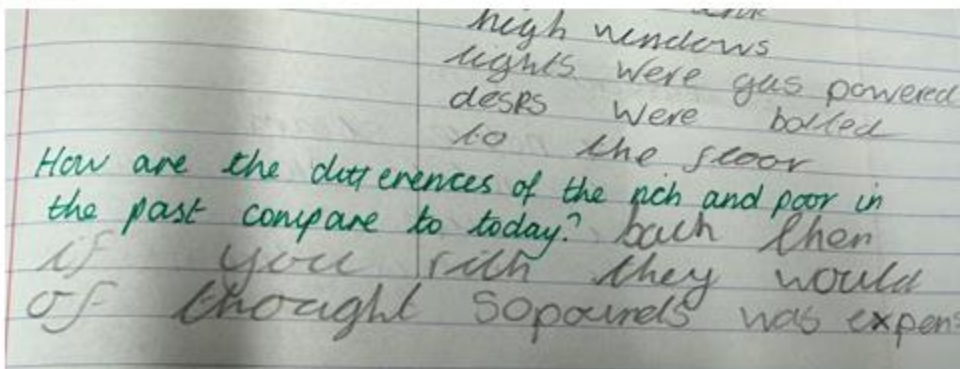 high windows
lights were gas powered
desks were bolted
to the floor
How are the differences of the rich and poor in
the past compare to today? back then
if you rich they would
of thought 50pounds was expens